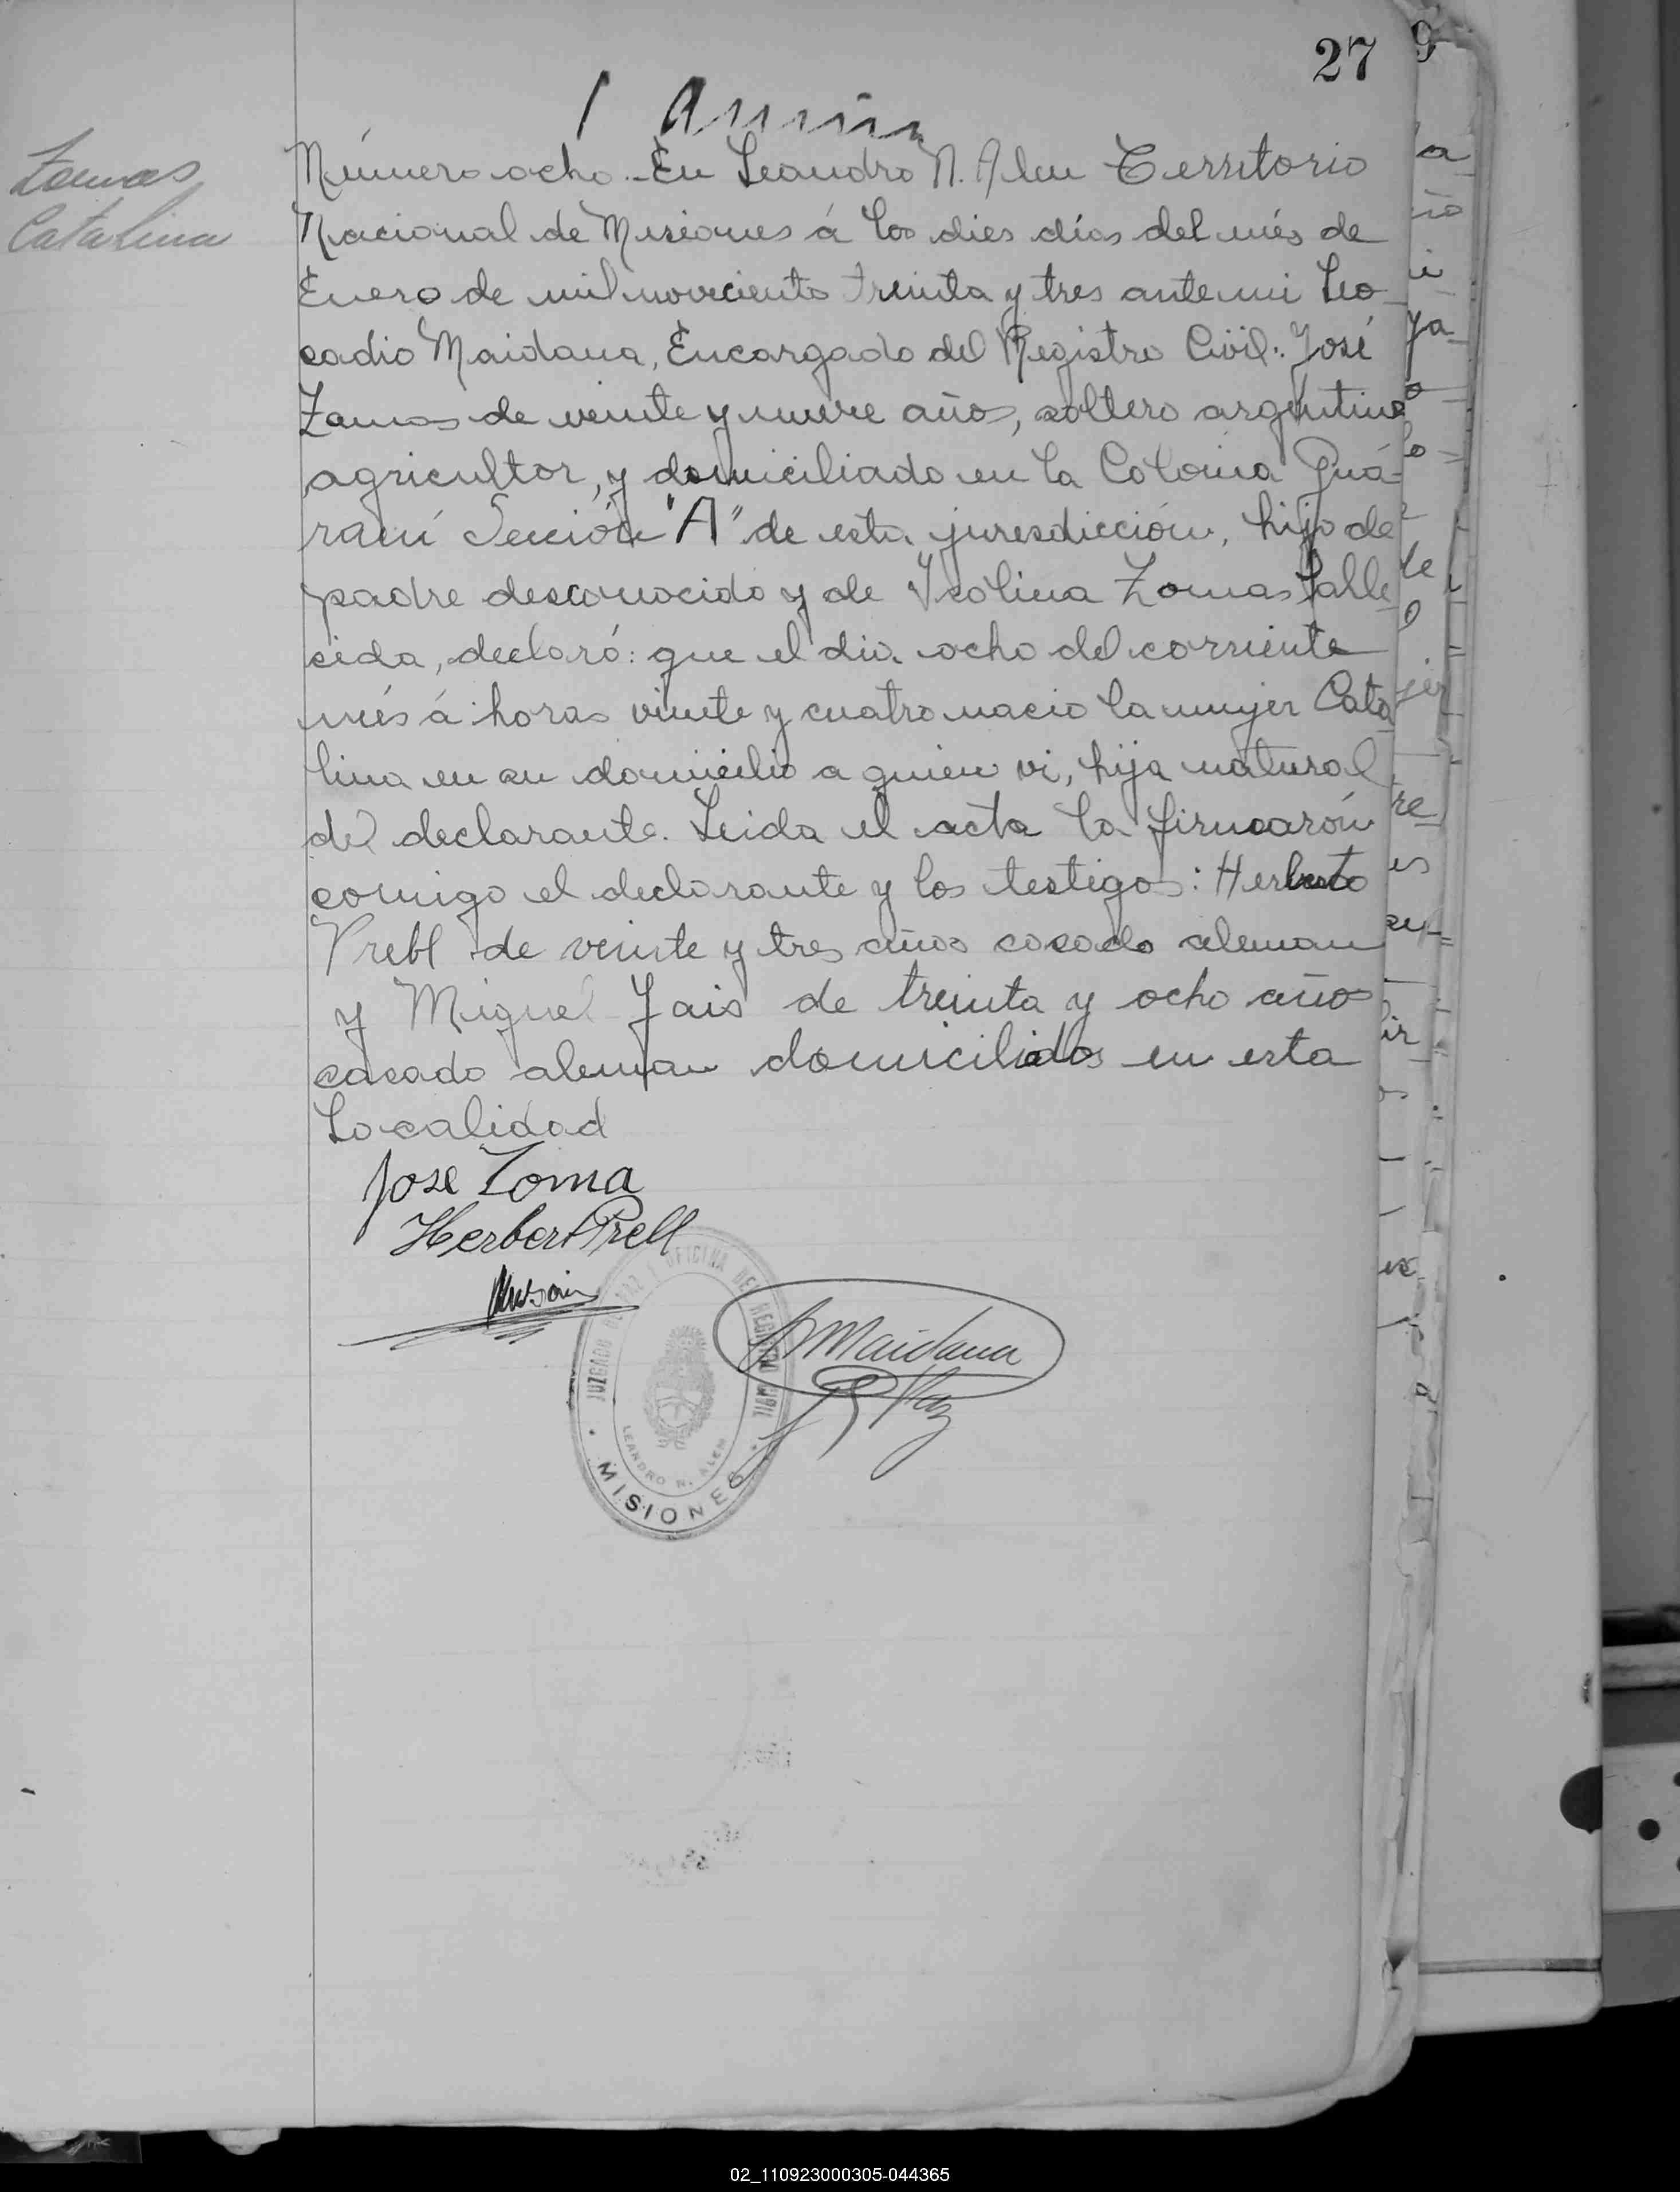 27
Zomas
Catalina
Número ocho. En Leandro N. Alem Territorio
Nacional de Misiones á los dies días del més de
Enero de mil noveciento treinta y tres ante mi Leo
cadio Maidana, Encargado del Registro Civil: José
Zomas de veinte y nueve años, soltero argentino
agricultor, y domiciliado en la Colonia Guá-
raní Sección "A" de esta juresdicción, hijo de
padre desconocido y de Isolina Zomas falle
sida, declaró: que el dia ocho del corriente
més á horas veinte y cuatro nacio la mujer Cata
lina en su domicilio a quien vi, hija natural
del declarante. Leida el acta la firmarón
comigo el declarante y los testigos: Herberto
Prebl de veinte y tres años casado aleman
y Miguel Jais de treinta y ocho años
casado aleman domiciliados en esta
Localidad
Jose Zoma
Herbert Prell
Maidana
JUZGADO DE PAZ Y OFICINA DEL REGISTRO CIVIL
LEANDRO N. ALEM
MISIONES
02_110923000305-044365